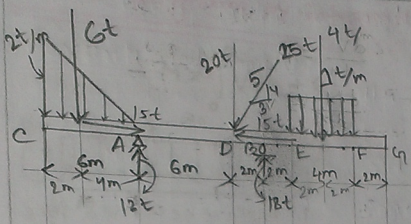 2t/m 6t 20t 5 25t 4t
4 3 1t/m
15t 15t
C A D B E F G
6m 6m 2m 2m 4m
2m 4m 2m 2m 2m
12t 18t